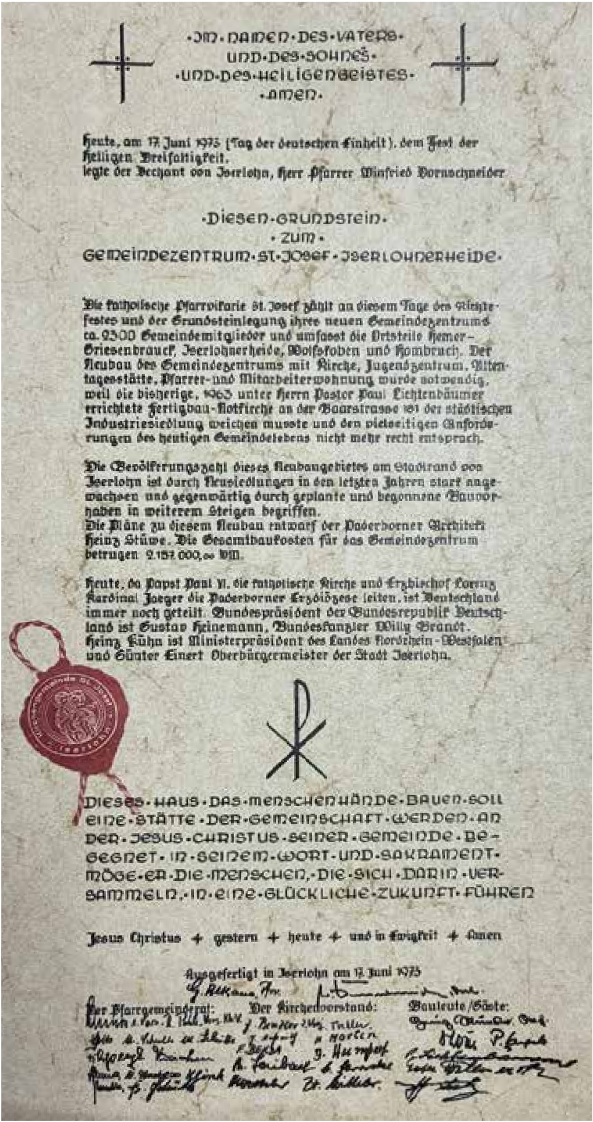 ·IM·NAMEN·DES·VATERS·
UND·DES·SOHNES·
·UND·DES·HEILIGENGEISTES·
·AMEN·
Heute, am 17. Juni 1973 (Tag der deutschen Einheit), dem Fest der
Heiligen Dreifaltigkeit,
legte der Dechant von Iserlohn, Herr Pfarrer Winfried Dornschneider
·DIESEN·GRUNDSTEIN·
·ZUM·
GEMEINDEZENTRUM·ST·JOSEF·ISERLOHNERHEIDE·
Die katholische Pfarrvikarie St. Josef zählt an diesem Tage des Richt-
festes und der Grundsteinlegung ihres neuen Gemeindezentrums
ca. 2300 Gemeindemitglieder und umfasst die Ortsteile Hemer-
Griesenbrauck, Iserlohnerheide, Wolfskoben und Hombruch. Der
Neubau des Gemeindezentrums mit Kirche, Jugendzentrum, Alten-
tagesstätte, Pfarrer- und Mitarbeiterwohnung wurde notwendig,
weil die bisherige, 1963 unter Herrn Pastor Paul Lichtenbäumer
errichtete Fertigbau-Notkirche an der Baarstrasse 181 der städtischen
Industriesiedlung weichen musste und den vielseitigen Anforde-
rungen des heutigen Gemeindelebens nicht mehr recht entsprach.
Die Bevölkerungszahl dieses Neubaugebietes am Stadtrand von
Iserlohn ist durch Neusiedlungen in den letzten Jahren stark ange-
wachsen und gegenwärtig durch geplante und begonnene Bauvor-
haben in weiterem Steigen begriffen.
Die Pläne zu diesem Neubau entwarf der Paderborner Architekt
Heinz Stüwe. Die Gesamtbaukosten für das Gemeindezentrum
betrugen 2.157.000,00 DM.
Heute, da Papst Paul VI. die katholische Kirche und Erzbischof Lorenz
Kardinal Jaeger die Paderborner Erzdiözese leiten, ist Deutschland
immer noch geteilt. Bundespräsident der Bundesrepublik Deutsch-
land ist Gustav Heinemann, Bundeskanzler Willy Brandt.
Heinz Kühn ist Ministerpräsident des Landes Nordrhein-Westfalen
und Günter Einert Oberbürgermeister der Stadt Iserlohn.
DIESES·HAUS·DAS·MENSCHENHÄNDE·BAUEN·SOLL
EINE·STÄTTE·DER·GEMEINSCHAFT·WERDEN·AN
DER·JESUS·CHRISTUS·SEINER·GEMEINDE·BE-
GEGNET·IN·SEINEM·WORT·UND·SAKRAMENT·
MÖGE·ER·DIE·MENSCHEN,·DIE·SICH·DARIN·VER-
SAMMELN,·IN·EINE·GLÜCKLICHE·ZUKUNFT·FÜHREN
Jesus Christus + gestern + heute + und in Ewigkeit + Amen
Ausgefertigt in Iserlohn am 17. Juni 1973
Der Pfarrgemeinderat: Der Kirchenvorstand: Bauleute/Gäste: